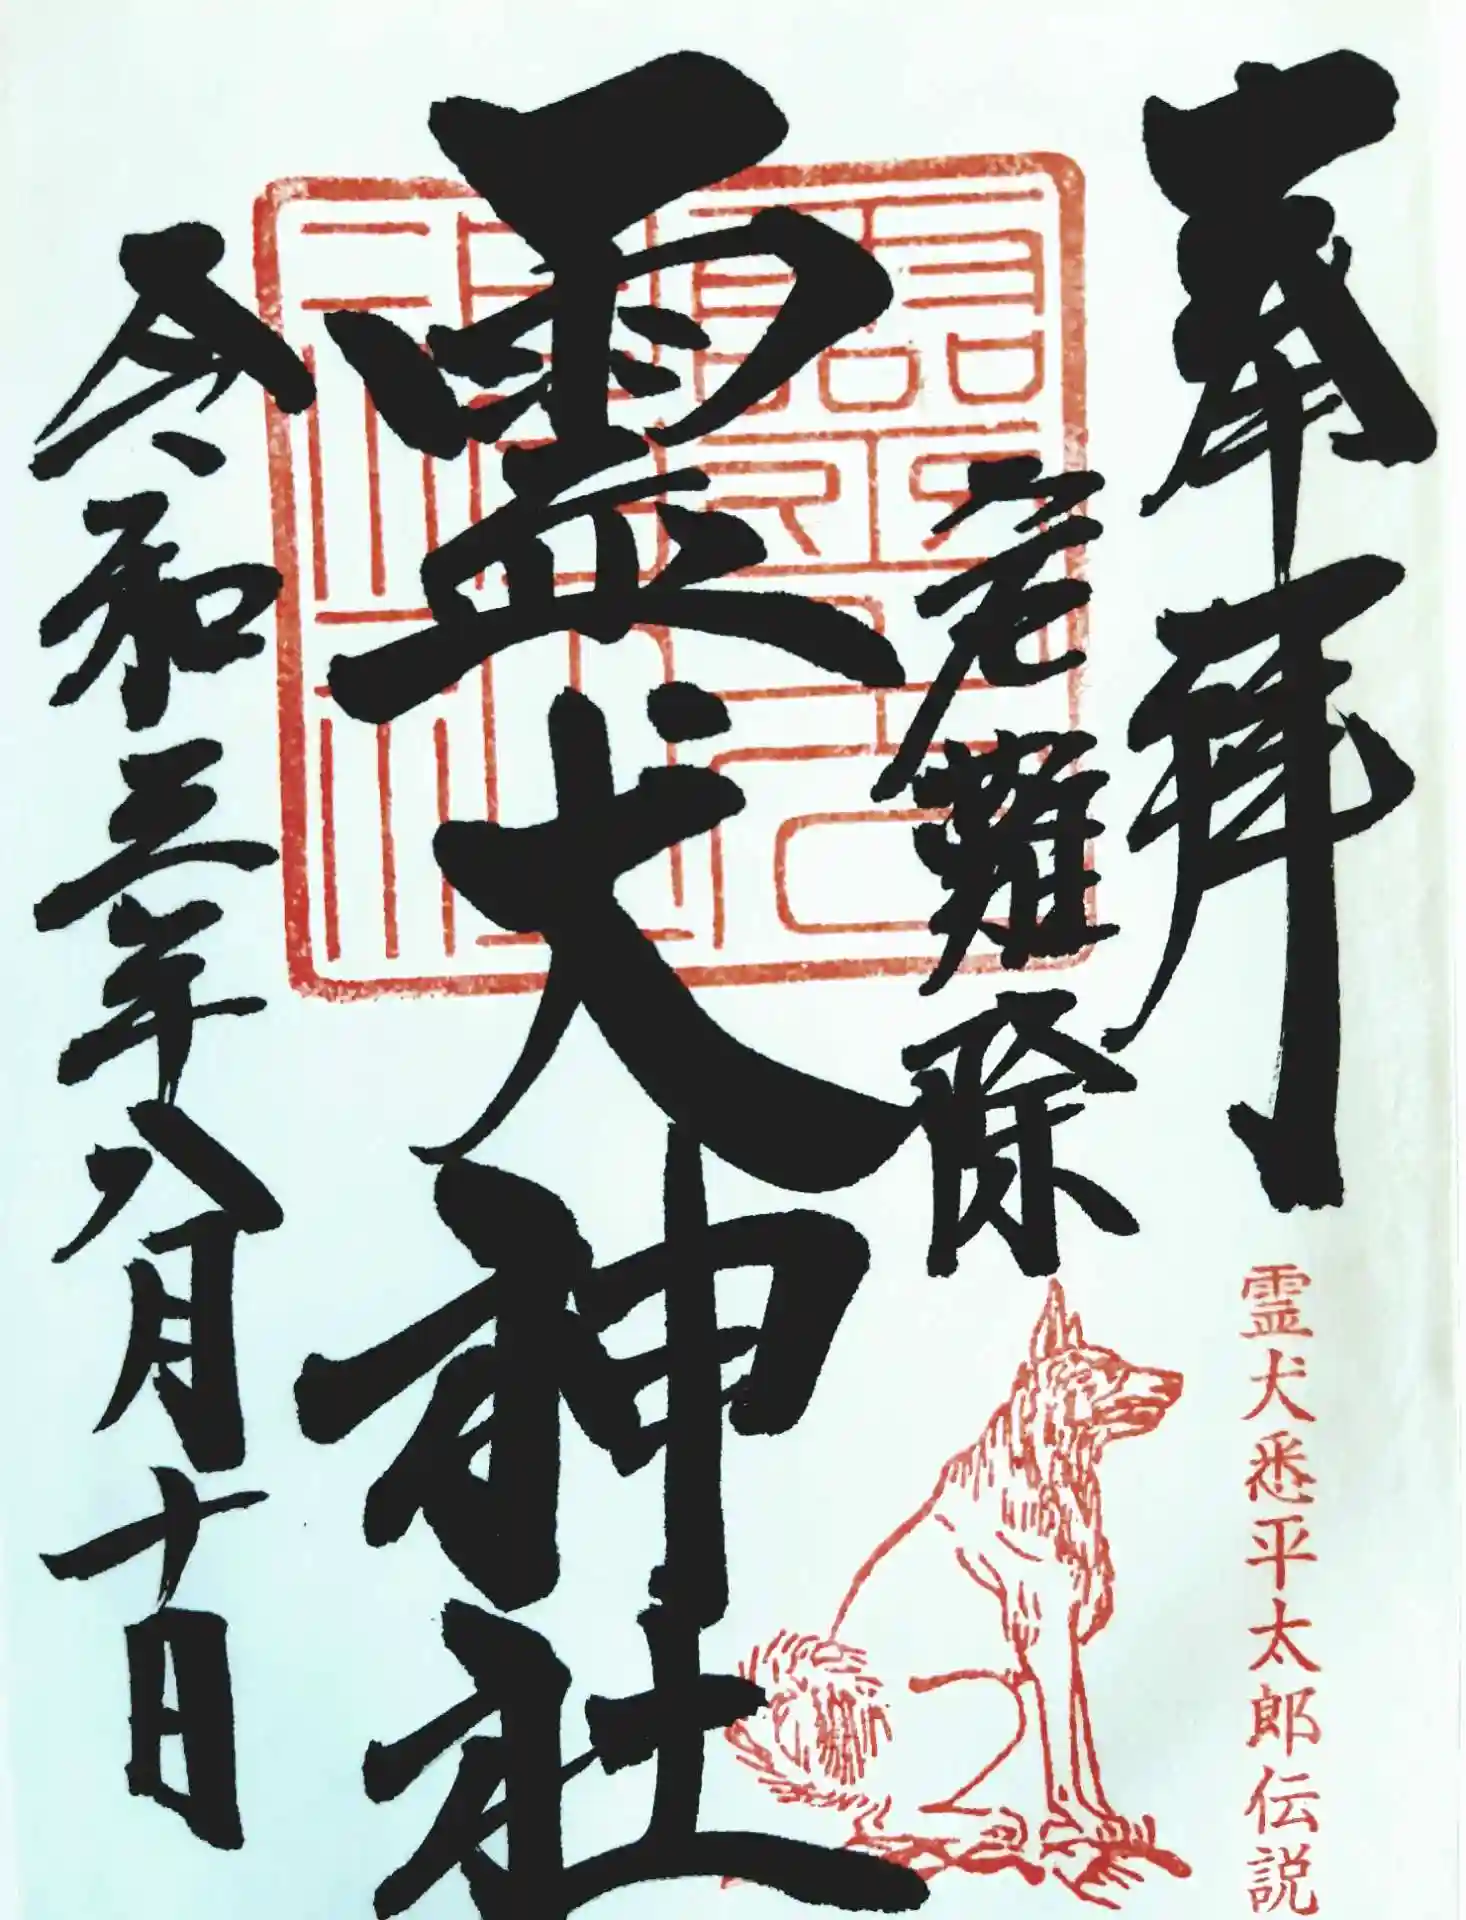 奉拝
霊犬悉平太郎伝説
危難除
霊犬神社
令和三年八月十日